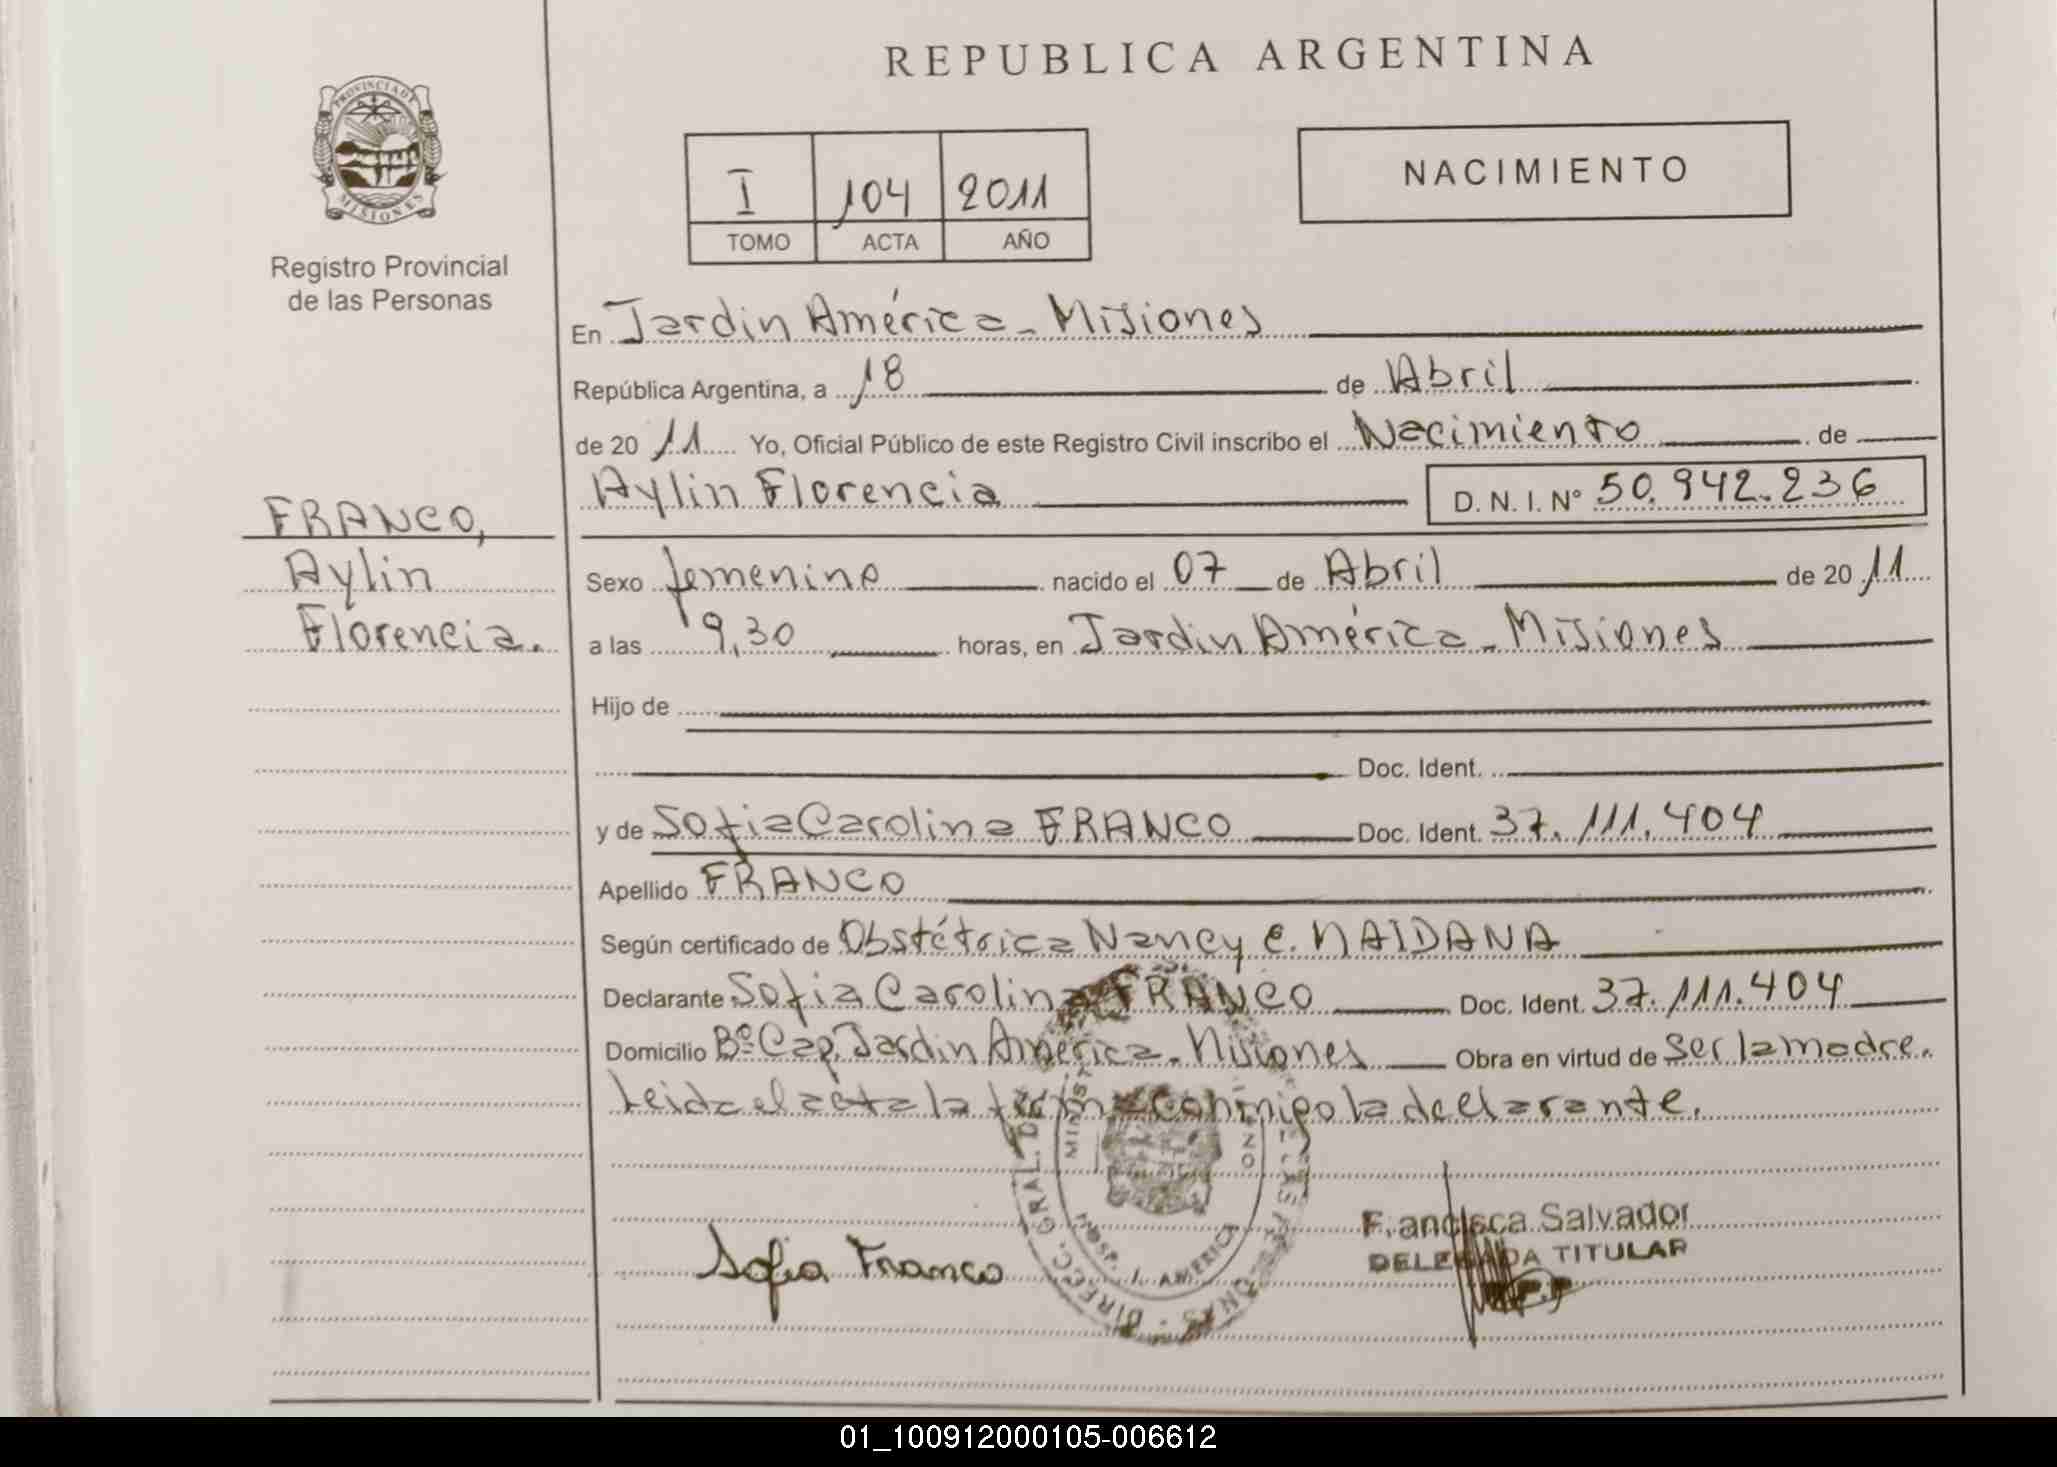 REPUBLICA ARGENTINA
PROVINCIA DE
MISIONES
Registro Provincial
de las Personas
I 104 2011
TOMO ACTA AÑO
NACIMIENTO
En Jardin América - Misiones
República Argentina, a 18 de Abril
de 20 11 Yo, Oficial Público de este Registro Civil inscribo el Nacimiento de
Aylin Florencia D. N. I. N° 50.942.236
FRANCO,
Aylin
Florencia.
Sexo femenino nacido el 07 de Abril de 20 11
a las 9,30 horas, en Jardin América - Misiones
Hijo de
Doc. Ident.
y de Sofia Carolina FRANCO Doc. Ident. 37.111.404
Apellido FRANCO
Según certificado de Obstétrica Nancy C. NAIDANA
Declarante Sofia Carolina FRANCO Doc. Ident. 37.111.404
Domicilio Bº Cap. Jardin América - Misiones Obra en virtud de Ser la madre.
Leida el acta la firma conmigo la declarante.
DIRECC. GRAL. DE
HOSP. J. AMERICA
Sofia Franco
Francisca Salvador
DELEGADA TITULAR
01_100912000105-006612